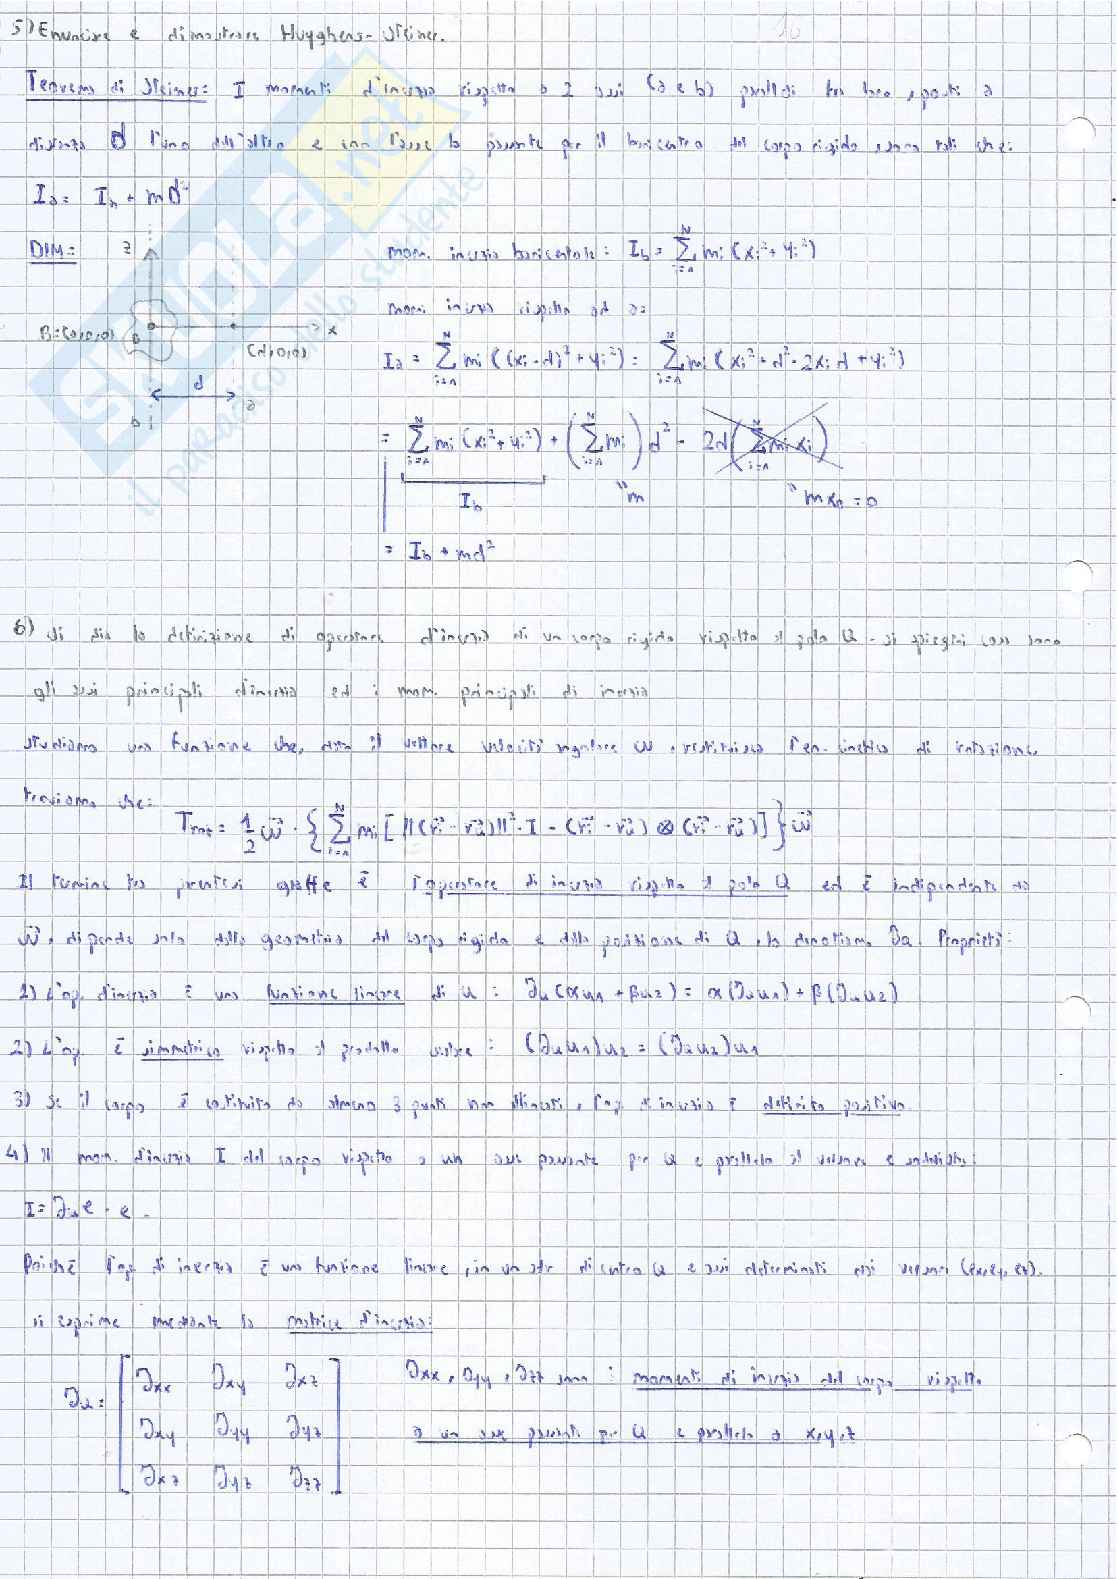 5) Enunciare e dimostrare Huyghens-Steiner.
10
Teorema di Steiner: I momenti d'inerzia rispetto a 2 assi (a e b) paralleli tra loro, posti a
distanza d l'uno dall'altro e con l'asse b passante per il baricentro del corpo rigido, sono tali che:
I_a = I_b + md²
DIM: z mom. inerzia baricentrale: I_b = Σ_{i=1}^{N} m_i (x_i² + y_i²)
mom. inerzia rispetto ad a:
B=(0,0,0) B x
(d,0,0)
I_a = Σ_{i=1}^{N} m_i ((x_i - d)² + y_i²) = Σ_{i=1}^{N} m_i (x_i² + d² - 2x_i d + y_i²)
d
b a
= Σ_{i=1}^{N} m_i (x_i² + y_i²) + (Σ_{i=1}^{N} m_i) d² - 2d (Σ_{i=1}^{N} m_i x_i)
I_b "m " m x_B = 0
= I_b + md²
6) si dia la definizione di operatore d'inerzia di un corpo rigido rispetto al polo Q - si spieghi cosa sono
gli assi principali d'inerzia ed i mom. principali di inerzia
studiamo una funzione che, dato il vettore velocità angolare ω, restituisca l'en. cinetica di rotazione.
troviamo che:
T_rot = 1/2 ω⃗ · { Σ_{i=1}^{N} m_i [ ||(r_i⃗ - r_Q⃗)||² · I - (r_i⃗ - r_Q⃗) ⊗ (r_i⃗ - r_Q⃗) ] } ω⃗
Il termine tra parentesi graffe è l'operatore di inerzia rispetto al polo Q ed è indipendente da
ω⃗, dipende solo dalla geometria del corpo rigido e dalla posizione di Q, lo denotiamo J_Q. Proprietà:
1) L'op. d'inerzia è una funzione lineare di u : J_Q (αu1 + βu2) = α(J_Q u1) + β(J_Q u2)
2) L'op. è simmetrico rispetto al prodotto scalare : (J_Q u1)u2 = (J_Q u2)u1
3) Se il corpo è costituito da almeno 3 punti non allineati, l'op. di inerzia è definito positivo.
4) Il mom. d'inerzia I del corpo rispetto a un asse passante per Q e parallelo al versore e
I = J_Q e · e.
Poiché l'op. di inerzia è una funzione lineare, in un sdr di centro Q e assi determinati dai versori (ex, ey, ez).
si esprime mediante la matrice d'inerzia:
J_Q = [ J_xx J_xy J_xz J_xx, J_yy, J_zz sono : momenti di inerzia del corpo rispetto
J_xy J_yy J_yz a un asse passanti per Q e parallelo a x,y,z
J_xz J_yz J_zz ]
SKUOLA.net
il paradiso dello studente